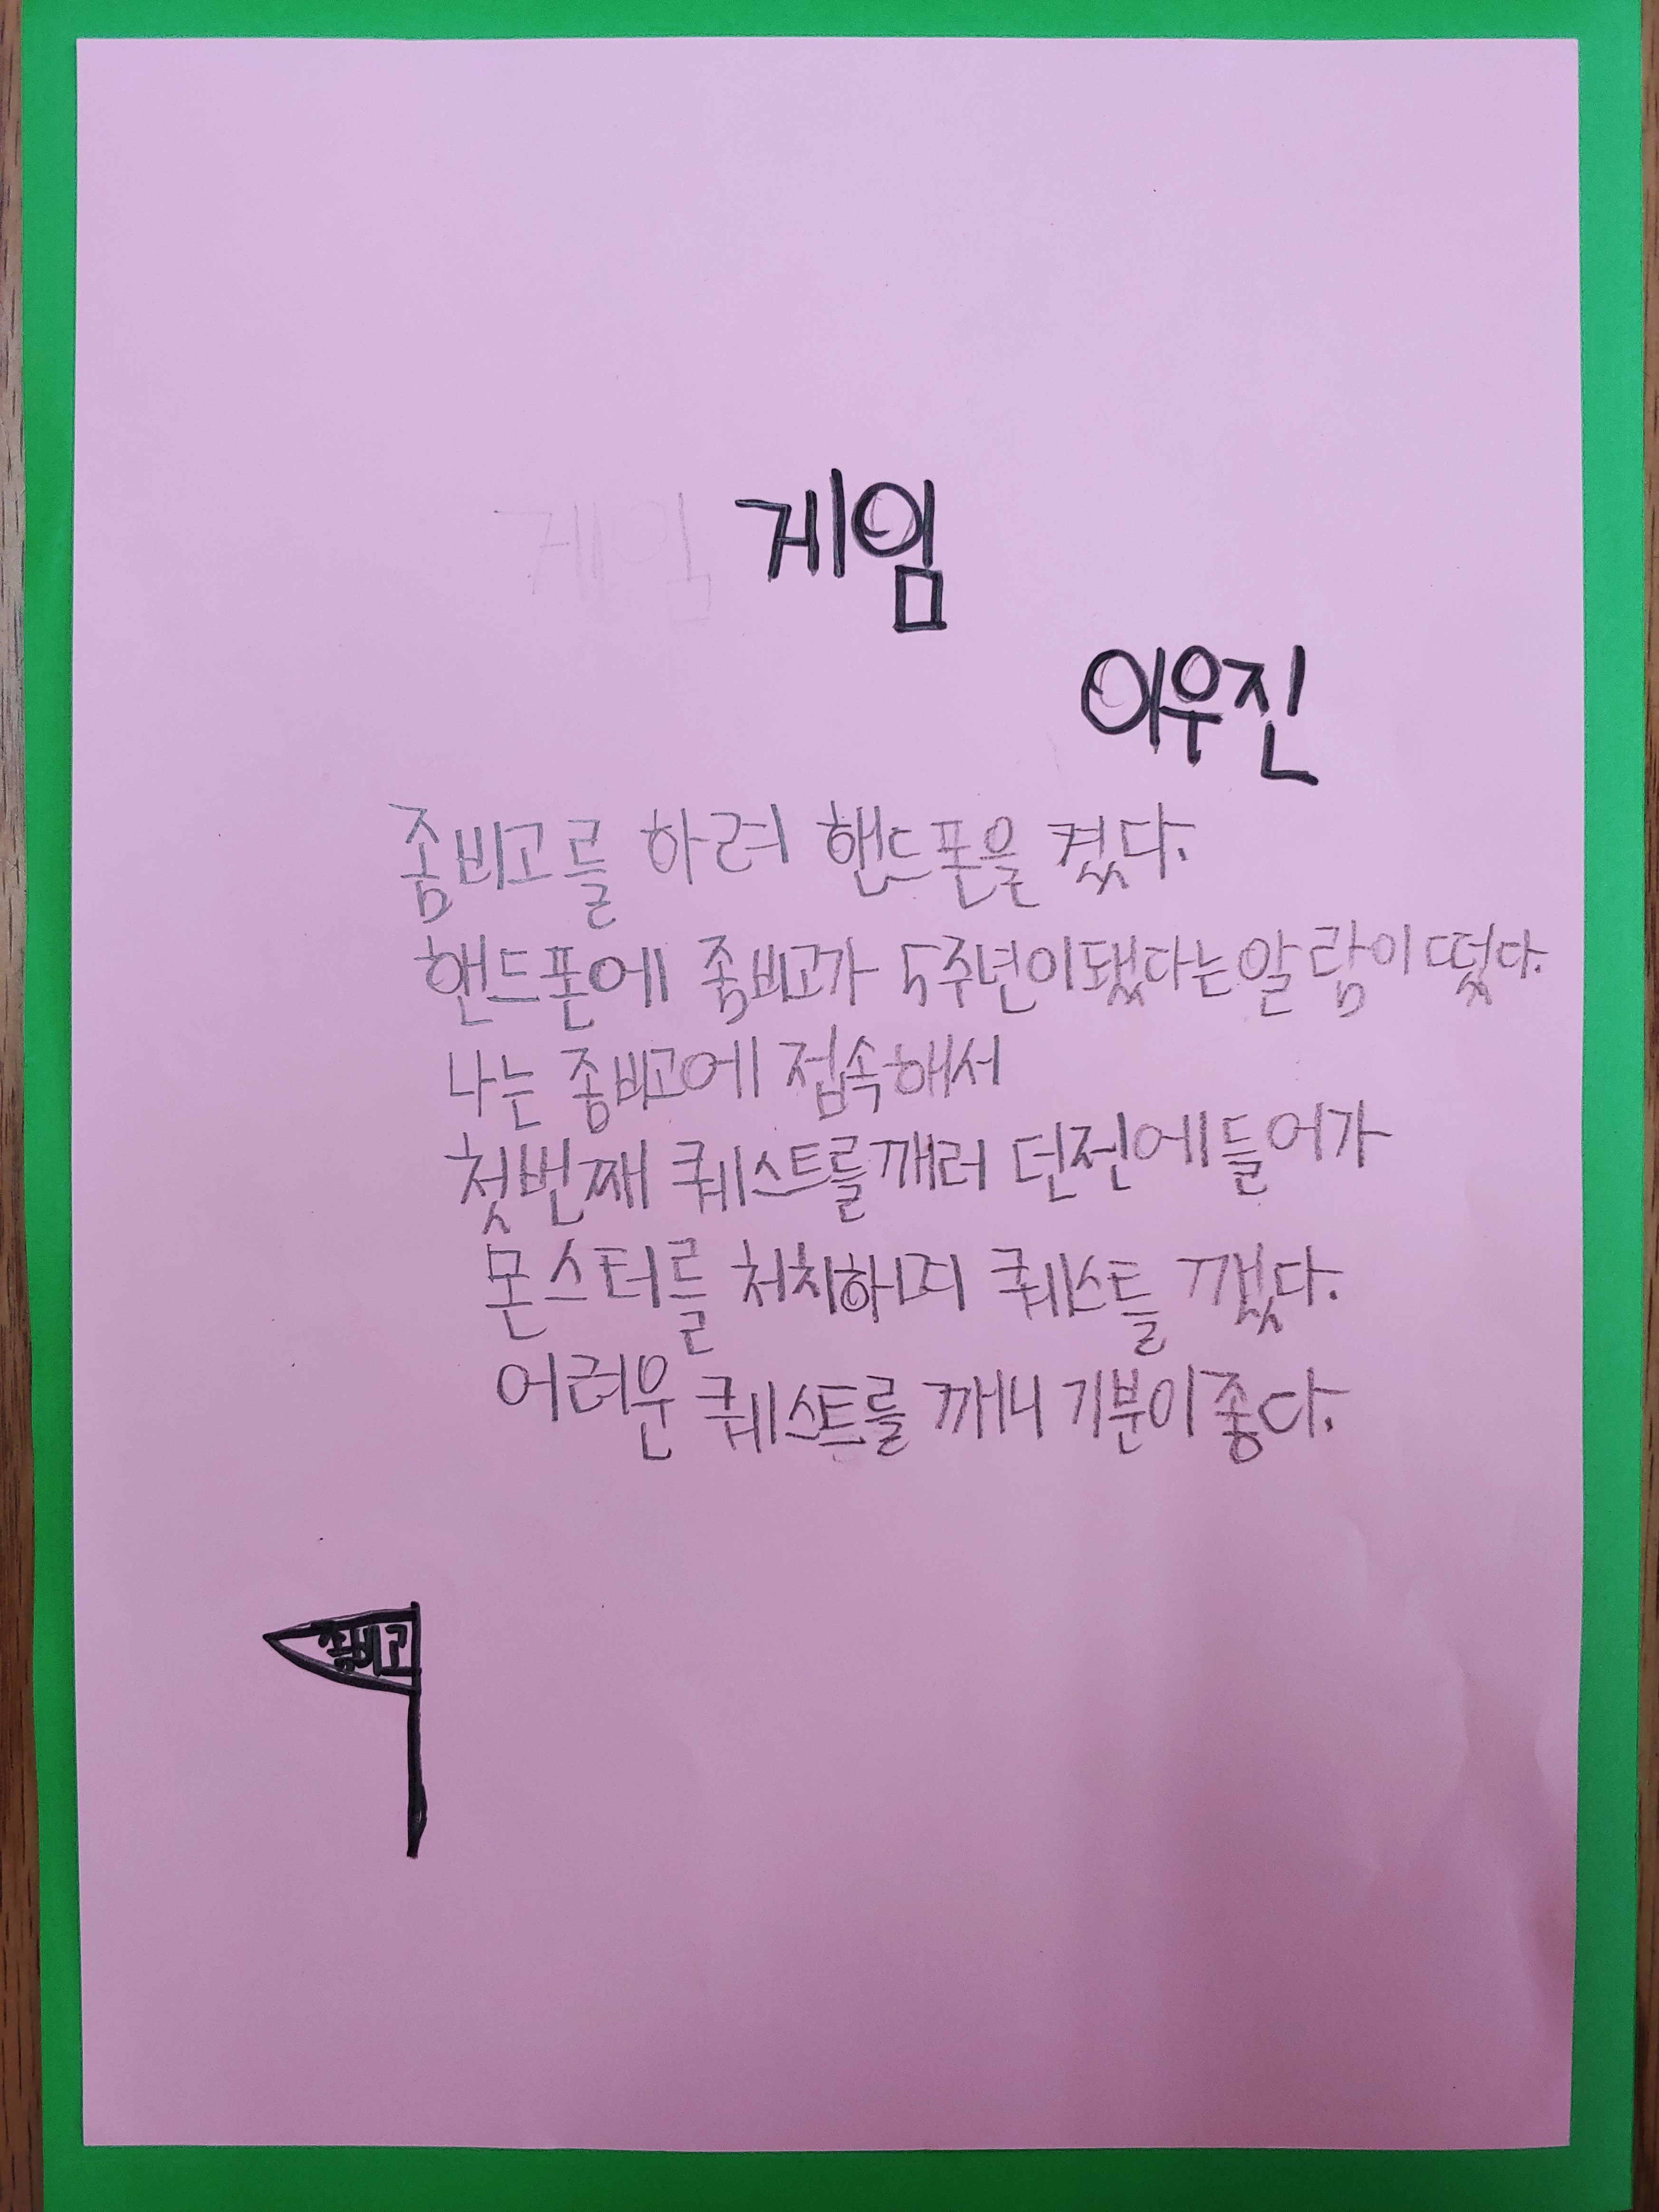 게임
게임
이우진
좀비고를 하려 핸드폰을 켰다.
핸드폰에 좀비고가 5주년이됐다는알람이 떴다.
나는 좀비고에 접속해서
첫번째 퀘스트를깨러 던전에들어가
몬스터를 처치하며 퀘스틀 깼다.
어려운 퀘스트를 깨니 기분이좋다.
좀비고